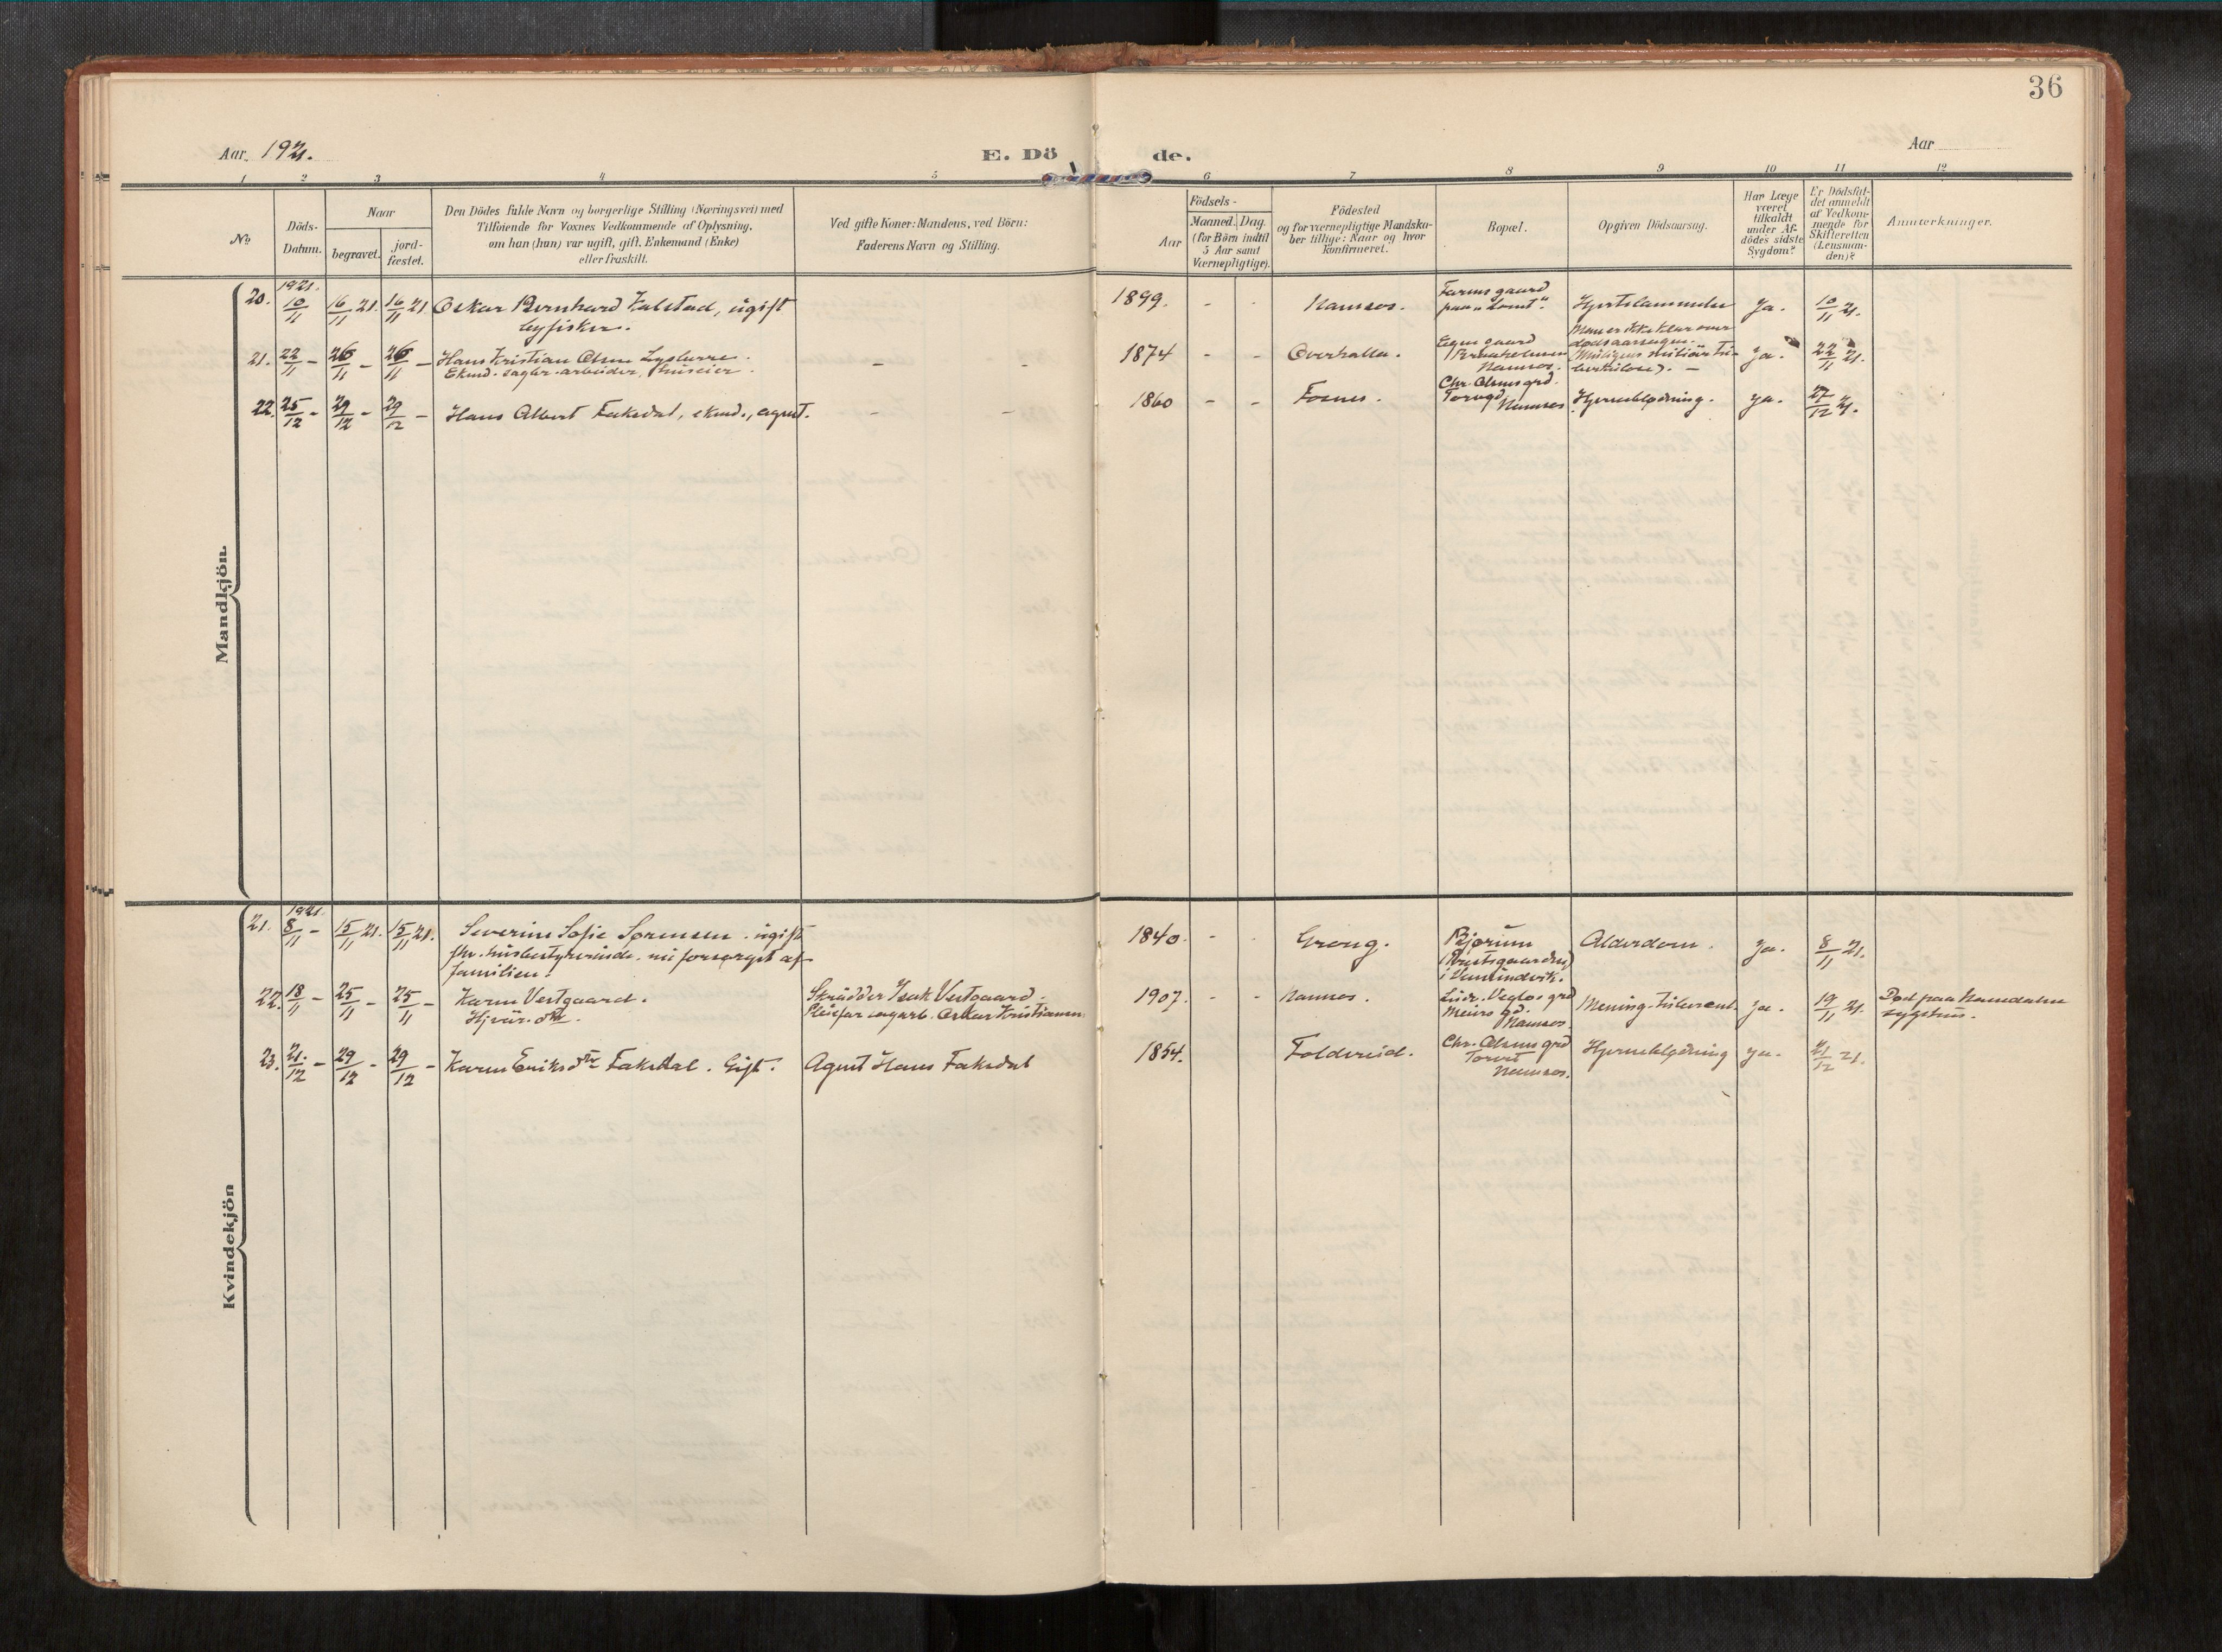 36
Aar 1921.
E. Dö
de.
Aar
1 2 3 4 5 6 7 8 9 10 11 12
No.
Döds-
Datum.
Naar
begravet.
jord-
fæstet.
Den Dödes fulde Navn og borgerlige Stilling (Næringsvei) med
Tilföiende for Voxnes Vedkommende af Oplysning,
om han (hun) var ugift, gift, Enkemand (Enke)
eller fraskilt.
Ved gifte Koner: Mandens, ved Börn:
Faderens Navn og Stilling.
Födsels-
Aar
Maaned. Dag.
(for Börn indtil
5 Aar samt
Værnepligtige).
Födested
og for værnepligtige Mandska-
ber tillige: Naar og hvor
konfirmeret.
Bopæl.
Opgiven Dödsaarsag.
Har Læge
været
tilkaldt
under Af-
dödes sidste
Sygdom?
Er Dödsfal-
det anmeldt
af Vedkom-
mende for
Skifteretten
(Lensman-
den)?
Anmærkninger.
Mandkjön.
1921.
20. 10/11 16/11 21. 16/11 21. Oskar Bernhard Kalstad, ugift
1899. - - Namsos.
Farens gaard
paa
Ja. 10/11 21.
21. 22/11 - 26/11 - 26/11 - Hans Kristian Olsen
Ekmd. sagbr. arbeider, huseier.
- -
1874 - - Overhalla.
Egen gaard
Namsos.
Man er ikke klar over
dödsaarsagen.
(Muligens miliær tu-
berkulose). -
Ja. 22/11 21.
22. 25/12 - 29/12 - 29/12 - Hans Albert Faksdal, ekmd., agent.
- -
1860 - - Fosnes.
Chr. Olsens grd.
Torvgd
Namsos.
Hjerneblødning. ja. 27/12 21.
Kvindekjön
1921.
21. 8/11 - 15/11 21. 15/11 21. Severine Sofie Sørensen. ugift
fhv. husbestyrerinde. nu forsørget af
familien.
1840. - - Grong.
Bjørum
(Prestgaarden)
i Vemundvik.
Alderdom. Ja. 8/11 21.
22. 18/11 - 25/11 - 25/11 - Karen Vestgaard.
Skrædder Isak Vestgaard.
Pleiefar sagarb. Oskar Kristiansen.
1907. - - Namsos.
grd
Namsos.
Mening. tuberent. ja. 19/11 21.
Død paa Namdalen
sygehus.
23. 21/12 - 29/12 - 29/12 - Karen Eriksdtr Faksdal. Gift. Agent Hans Faksdal
1854. Foldereid.
Chr. Olsens grd
Torvet
Namsos.
Hjerneblødning ja. 21/12 21.